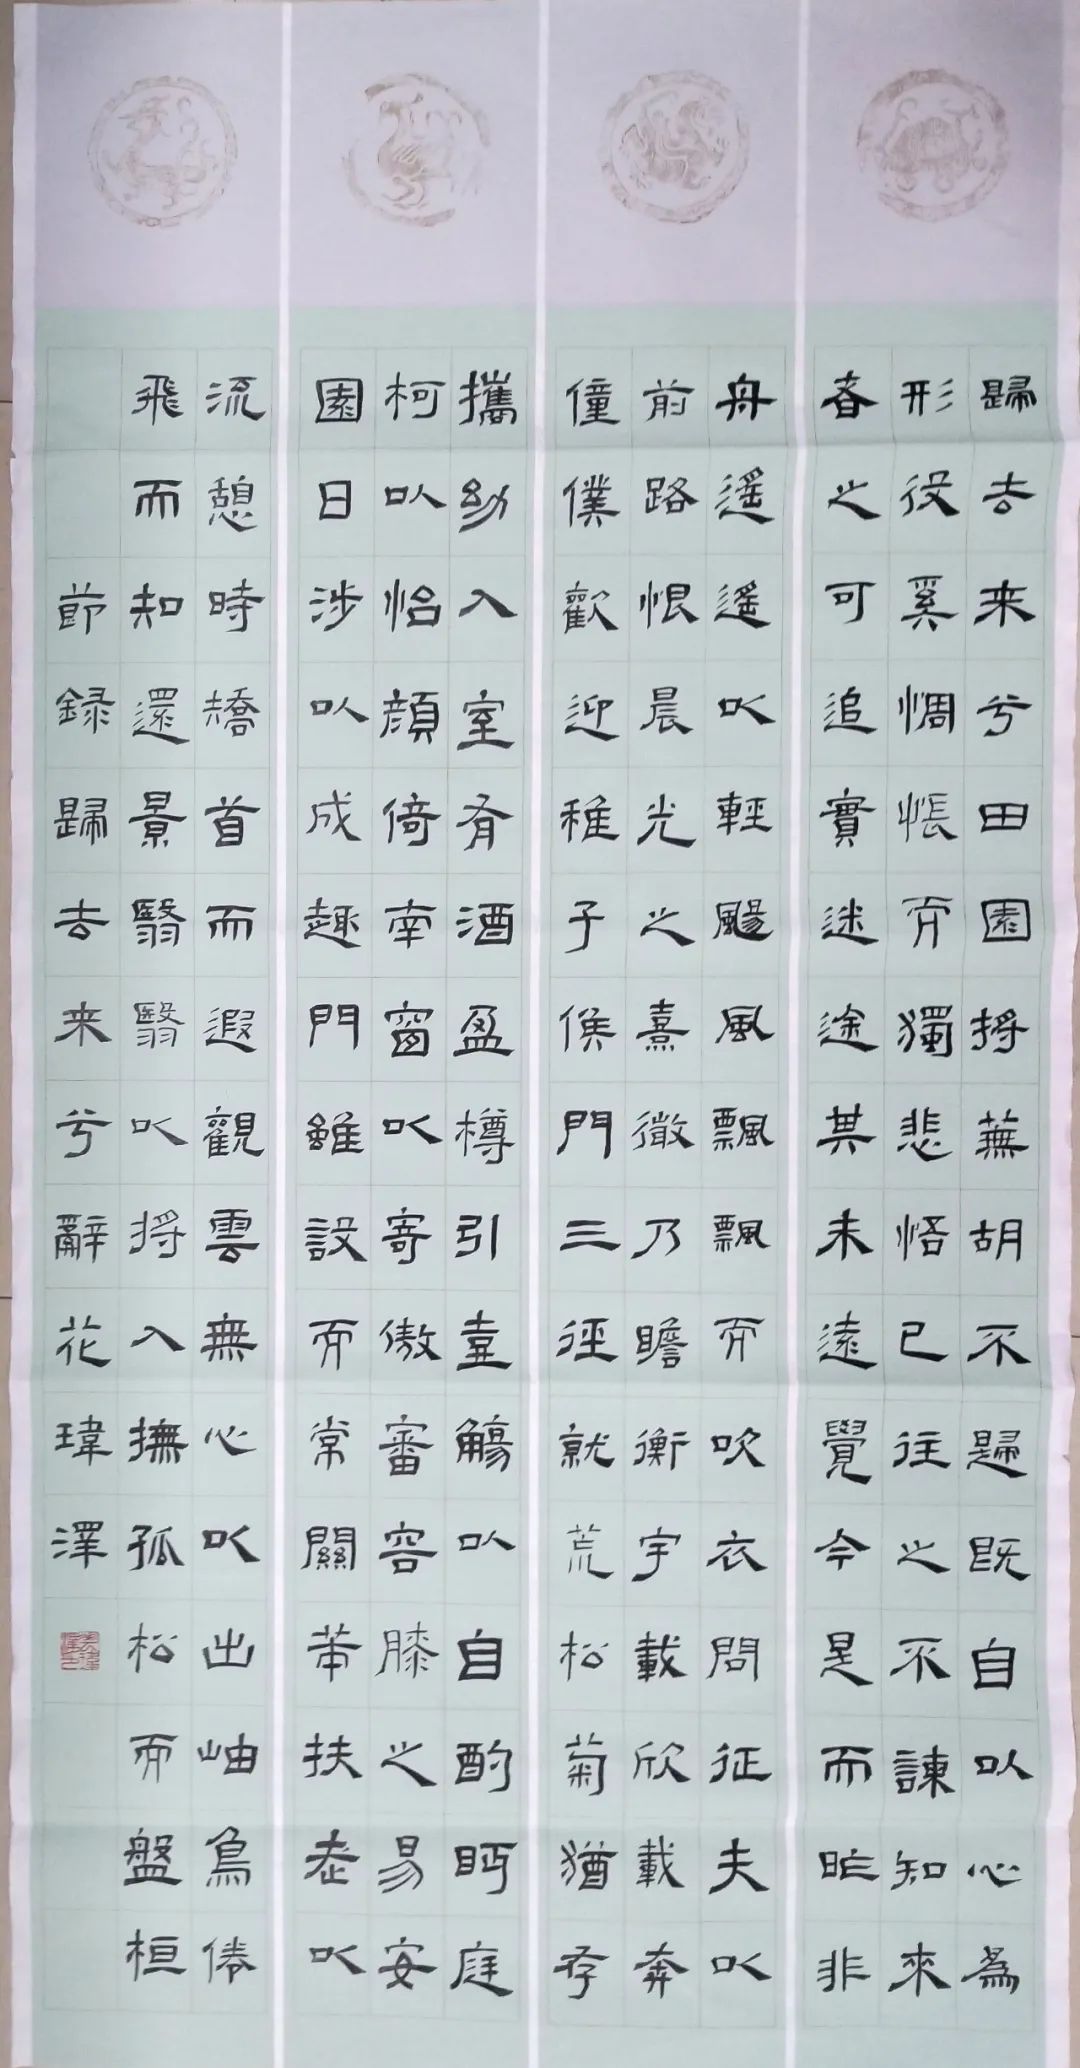 歸去来兮田園将蕪胡不歸既自以心為
形役奚惆悵而獨悲悟已往之不諫知來
者之可追實迷途其未遠覺今是而昨非
舟遥遥以輕颺風飄飄而吹衣問征夫以
前路恨晨光之熹微乃瞻衡宇載欣載奔
僮僕歡迎稚子候門三徑就荒松菊猶存
攜幼入室有酒盈樽引壺觴以自酌眄庭
柯以怡顔倚南窗以寄傲審容膝之易安
園日涉以成趣門雖設而常關策扶老以
流憩時矯首而遐觀雲無心以出岫鳥倦
飛而知還景翳翳以将入撫孤松而盤桓
節録歸去来兮辭花瑋澤